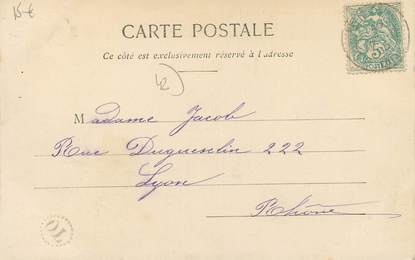 15 €
CARTE POSTALE
Ce côté est exclusivement réservé à l'adresse
Madame Jacob
Rue Duguesclin 222
Lyon
Rhône
OL